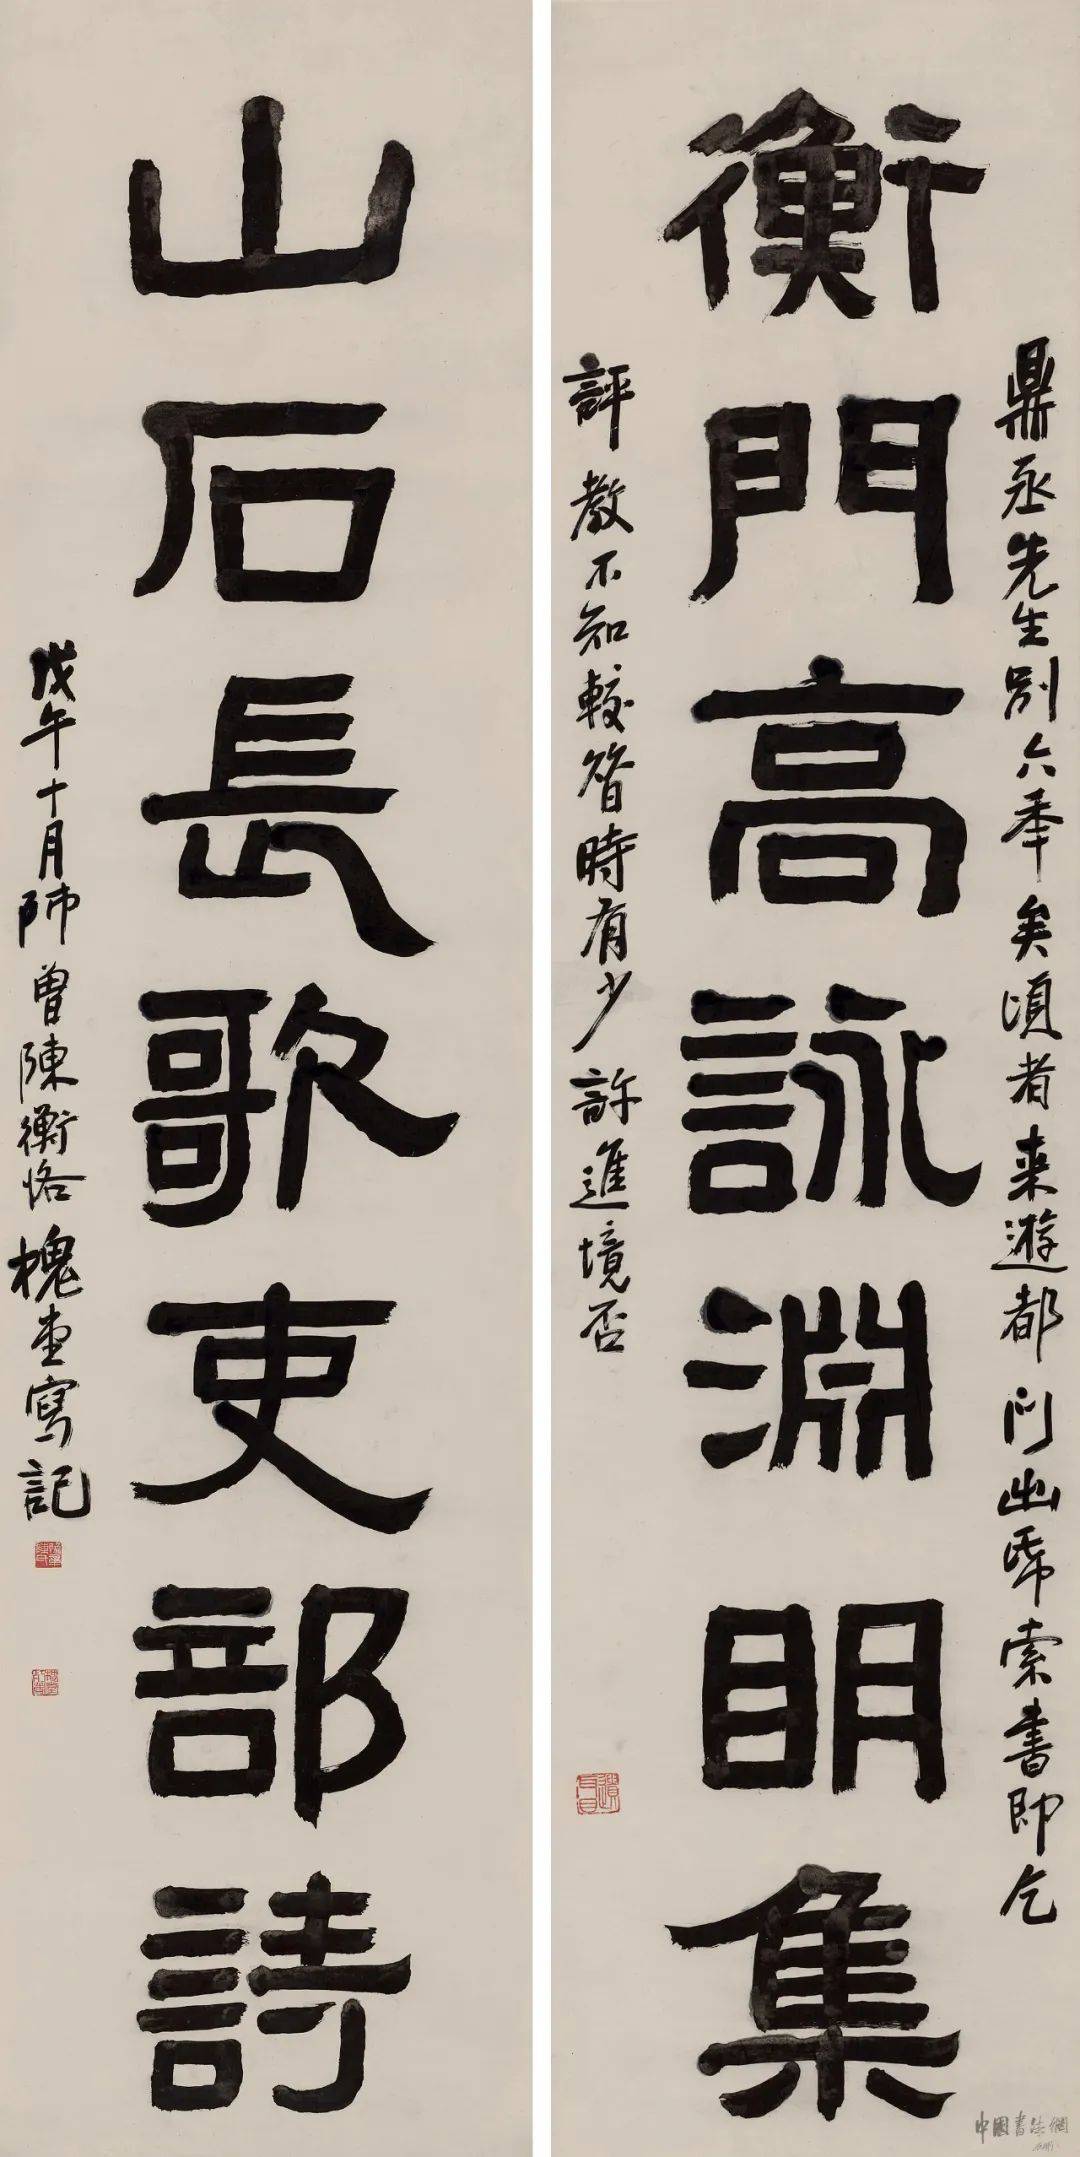 衡門高詠淵明集
鼎丞先生別六年矣頃者来遊都门出帋索書即乞
評教不知較昝時有少許進境否
山石長歌吏部詩
戊午十月師曾陳衡恪槐堂寫記
中國書法網